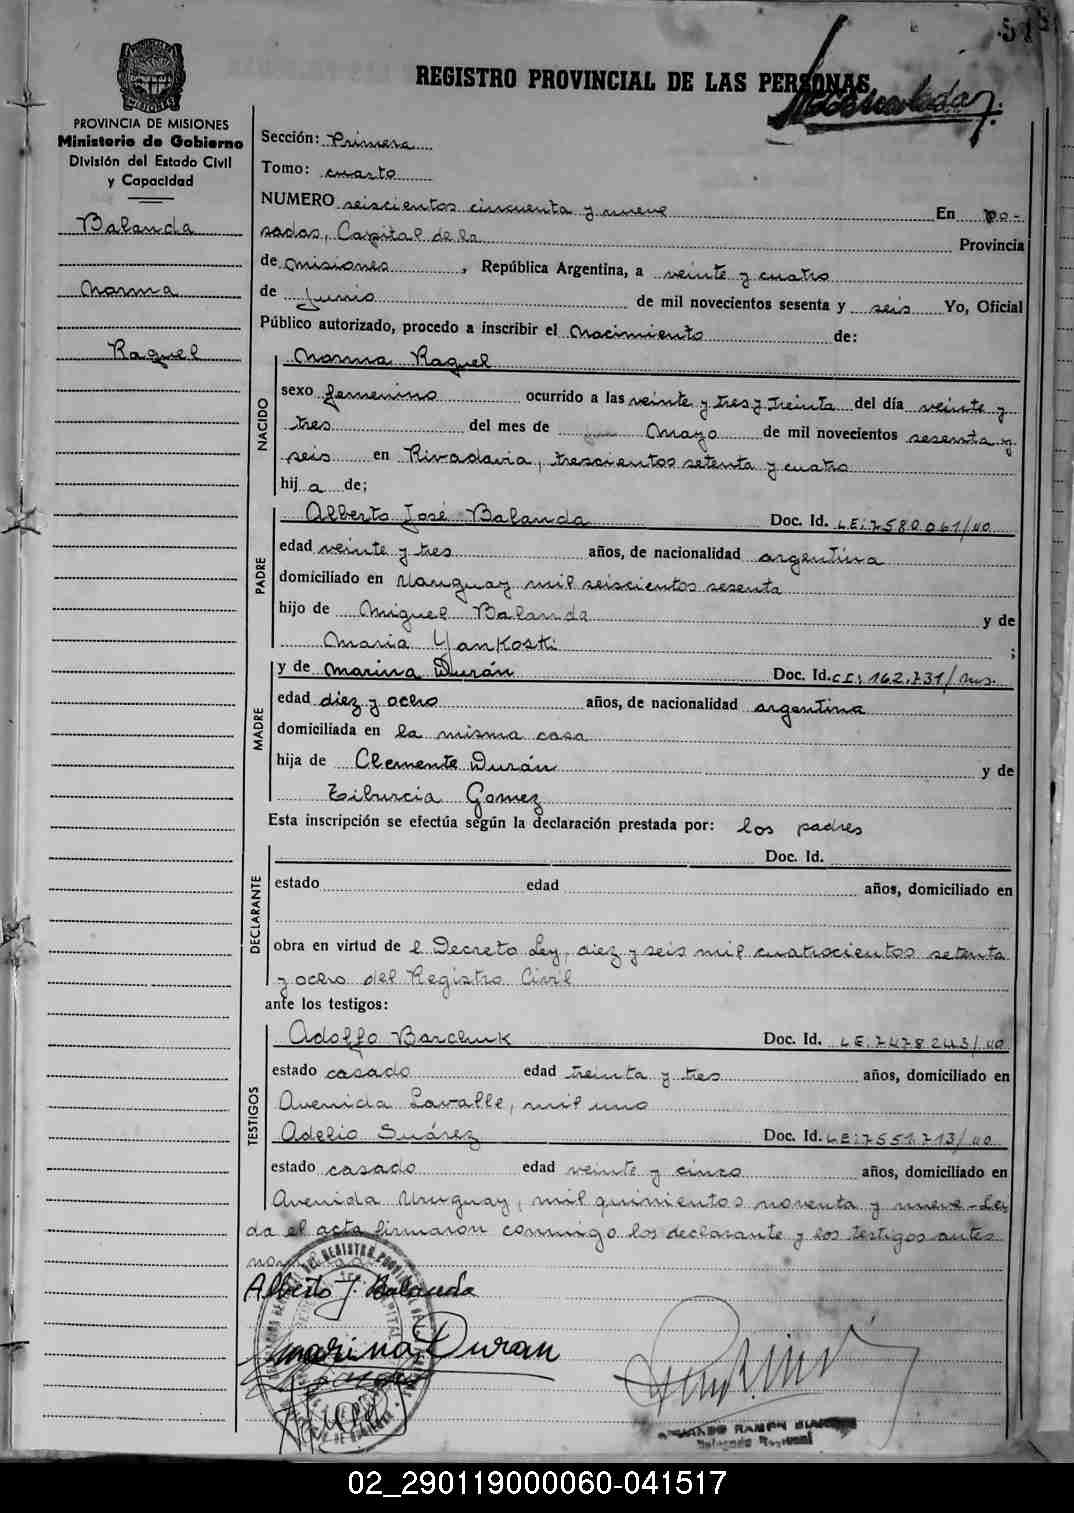 REGISTRO PROVINCIAL DE LAS PERSONAS
PROVINCIA DE MISIONES
Ministerio de Gobierno
División del Estado Civil
y Capacidad
Balanda
Norma
Raquel
Sección: Primera
Tomo: cuarto
NUMERO seiscientos cincuenta y nueve En Po-
sadas, Capital de la Provincia
de Misiones, República Argentina, a veinte y cuatro
de Junio de mil novecientos sesenta y seis Yo, Oficial
Público autorizado, procedo a inscribir el Nacimiento de:
NACIDO
Norma Raquel
sexo femenino ocurrido a las veinte y tres y treinta del día veinte y
tres del mes de Mayo de mil novecientos sesenta y
seis en Rivadavia, trescientos setenta y cuatro
hija de;
PADRE
Alberto José Balanda Doc. Id. LE: 7580061/40
edad veinte y tres años, de nacionalidad argentina
domiciliado en Uruguay mil seiscientos sesenta
hijo de Miguel Balanda y de
Maria Yankoski ;
MADRE
y de Marina Durán Doc. Id. C.I: 162.731/Mis.
edad diez y ocho años, de nacionalidad argentina
domiciliada en la misma casa
hija de Clemente Durán y de
Tiburcia Gomez
Esta inscripción se efectúa según la declaración prestada por: los padres
DECLARANTE
Doc. Id.
estado edad años, domiciliado en
obra en virtud de l Decreto Ley, diez y seis mil cuatrocientos setenta
y ocho del Registro Civil
ante los testigos:
TESTIGOS
Adolfo Barchuk Doc. Id. LE: 7478243/40
estado casado edad treinta y tres años, domiciliado en
Avenida Lavalle, mil uno
Adelio Suárez Doc. Id. LE: 7551.713/40
estado casado edad veinte y cinco años, domiciliado en
Avenida Uruguay, mil quinientos noventa y nueve - Lei
da el acta firmaron conmigo los declarante y los testigos antes
Alberto J. Balanda
Marina Duran
RAMON
02_290119000060-041517